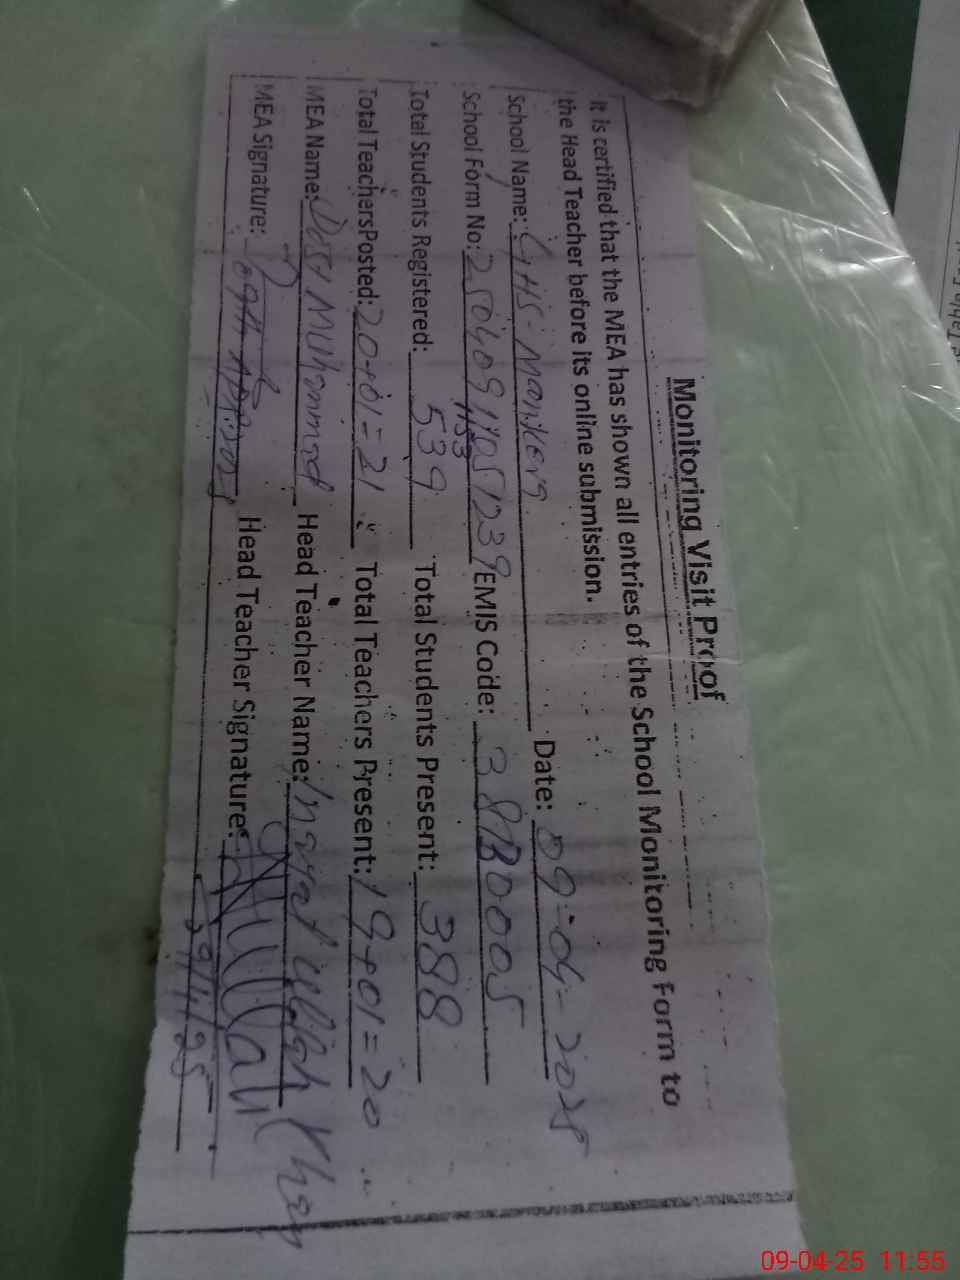 Monitoring Visit Proof
It is certified that the MEA has shown all entries of the School Monitoring Form to
the Head Teacher before its online submission.
School Name: GHS- Date: 09-04-2025
School Form No: EMIS Code: 38130005
1153
Total Students Registered: 539 Total Students Present: 388
Total TeachersPosted: 20+01=21 Total Teachers Present: 19+01=20
MEA Name: Dost Muhammad Head Teacher Name: Inayat Ullah Khan
MEA Signature: Head Teacher Signature:
09/4/25
09-04-25 11:55